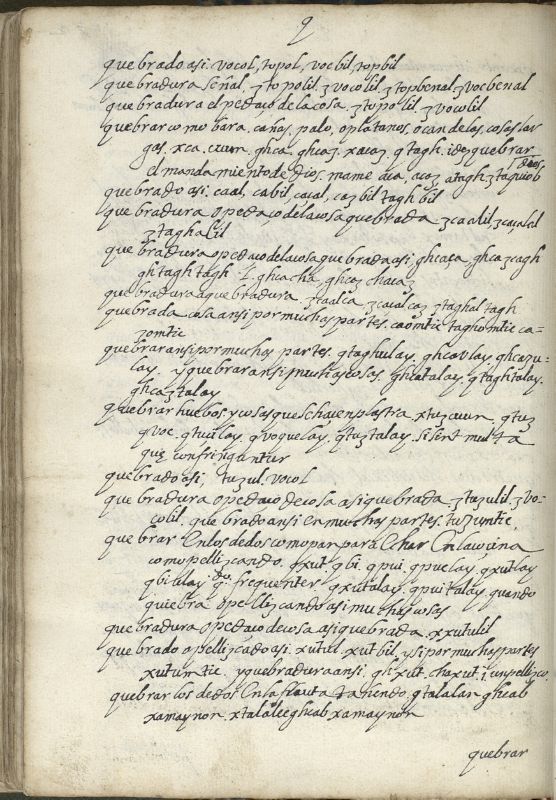 q
quebrado asi. vocol, topol, vocbil, topbil
quebradura señal. ʒ topolil. ʒ vocolil. ʒ topbenal ʒ vocbenal
quebradura el pedaço de la cosa. ʒ topolil. ʒ vocolil
quebrar como bara. cañas, palo, o platanos, o candelas, cosas lar
gas. xca. ghca, ghcaʒ. xacaʒ. qtagh. quebrar
el mandamiento de Dios. mame aca, acaʒ, atagh, ʒ
quebrado asi. caal, cabil, caçal, caʒbil taghbil
quebradura o pedaço de la cosa quebrada. ʒ caalil, ʒ caçalal
ʒ taghalil
quebradura o pedaço de la cosa quebrada asi, ghcaça, ghcaʒcagh
ghtaghtagh. ghcacha, ghcaʒ chacaʒ
quebradura de quebradura. ʒ calca, ʒ caçalcaʒ, ʒ taghaltagh
quebrada cosa ansi por muchas partes. caomtic taghomtic ca-
ʒomtic
quebrar ansi por muchas partes. qtaghulay, ghcavlay, ghcaʒu-
lay. y quebrar ansi muchas cosas. ghcatalay. qtaghtalay.
ghcaʒtalay
quebrar huebos, y cosas que se haçen plastra. xtuʒ, qtuʒ
qvoc. qtuilay, qvoquelay, qtuʒtalay. si sint multa
que confringantur
quebrado asi, tuʒul. vocol
quebradura o pedaço de cosa asi quebrada, ʒ tuʒulil. ʒ vo-
colil. quebrado ansi en muchas partes. tuʒumtic,
quebrar en los dedos como pan para echar en la coçina
como pelliʒcando. qxut. qbi. qpui. qpuelay, qxutlay
qbitilay. frequenter qxutalay. qpuitalay. quando
quiebra o pelliʒcando asi muchas cosas
quebradura o pedaço de cosa asi quebrada. xxutulil
quebrado o pelliʒcado asi. xutul. xutbil. y si por muchas partes
xutumtic. y quebradura ansi. qhxut. chaxut. i, un pelliʒco.
quebrar los dedos en la flauta tañendo. qtalalan ghcab
xamaynon. xtalalec ghcab xamaynon
quebrar